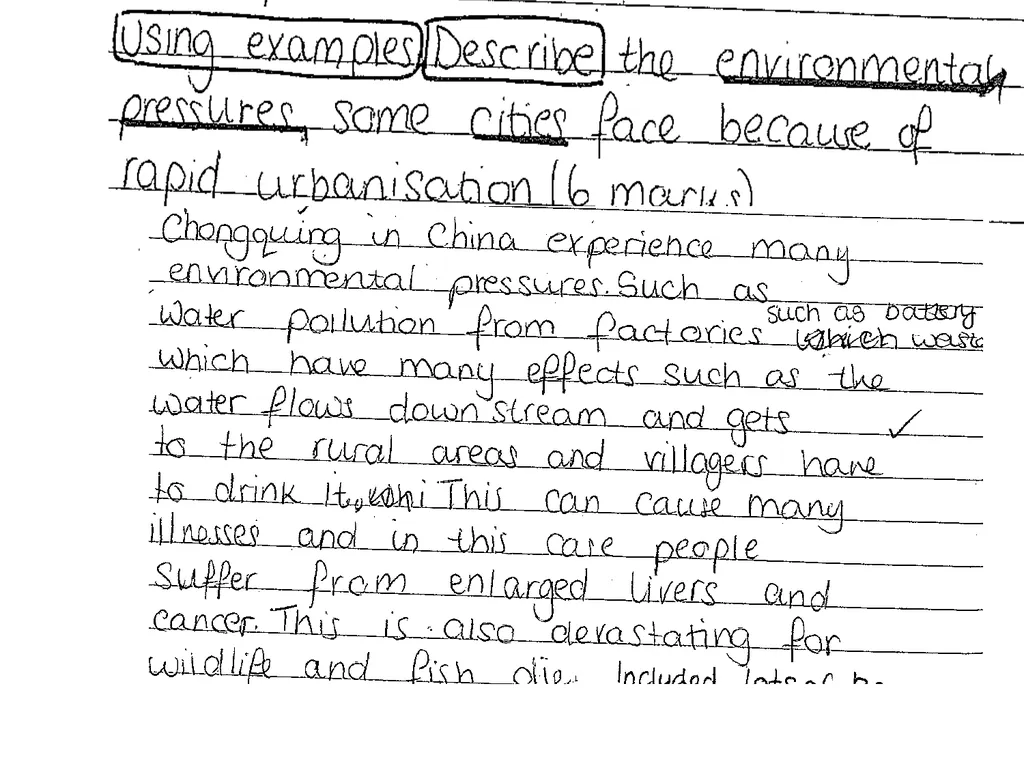 Using examples Describe the environmental
pressures, some cities face because of
rapid urbanisation (6 marks)
Chongquing in China experience many
environmental pressures. Such as
water pollution from factories such as battery waste
which have many effects such as the
water flows down stream and gets
to the rural areas and villagers have
to drink it. This can cause many
illnesses and in this case people
suffer from enlarged livers and
cancer. This is also devastating for
wildlife and fish die. Included lots of